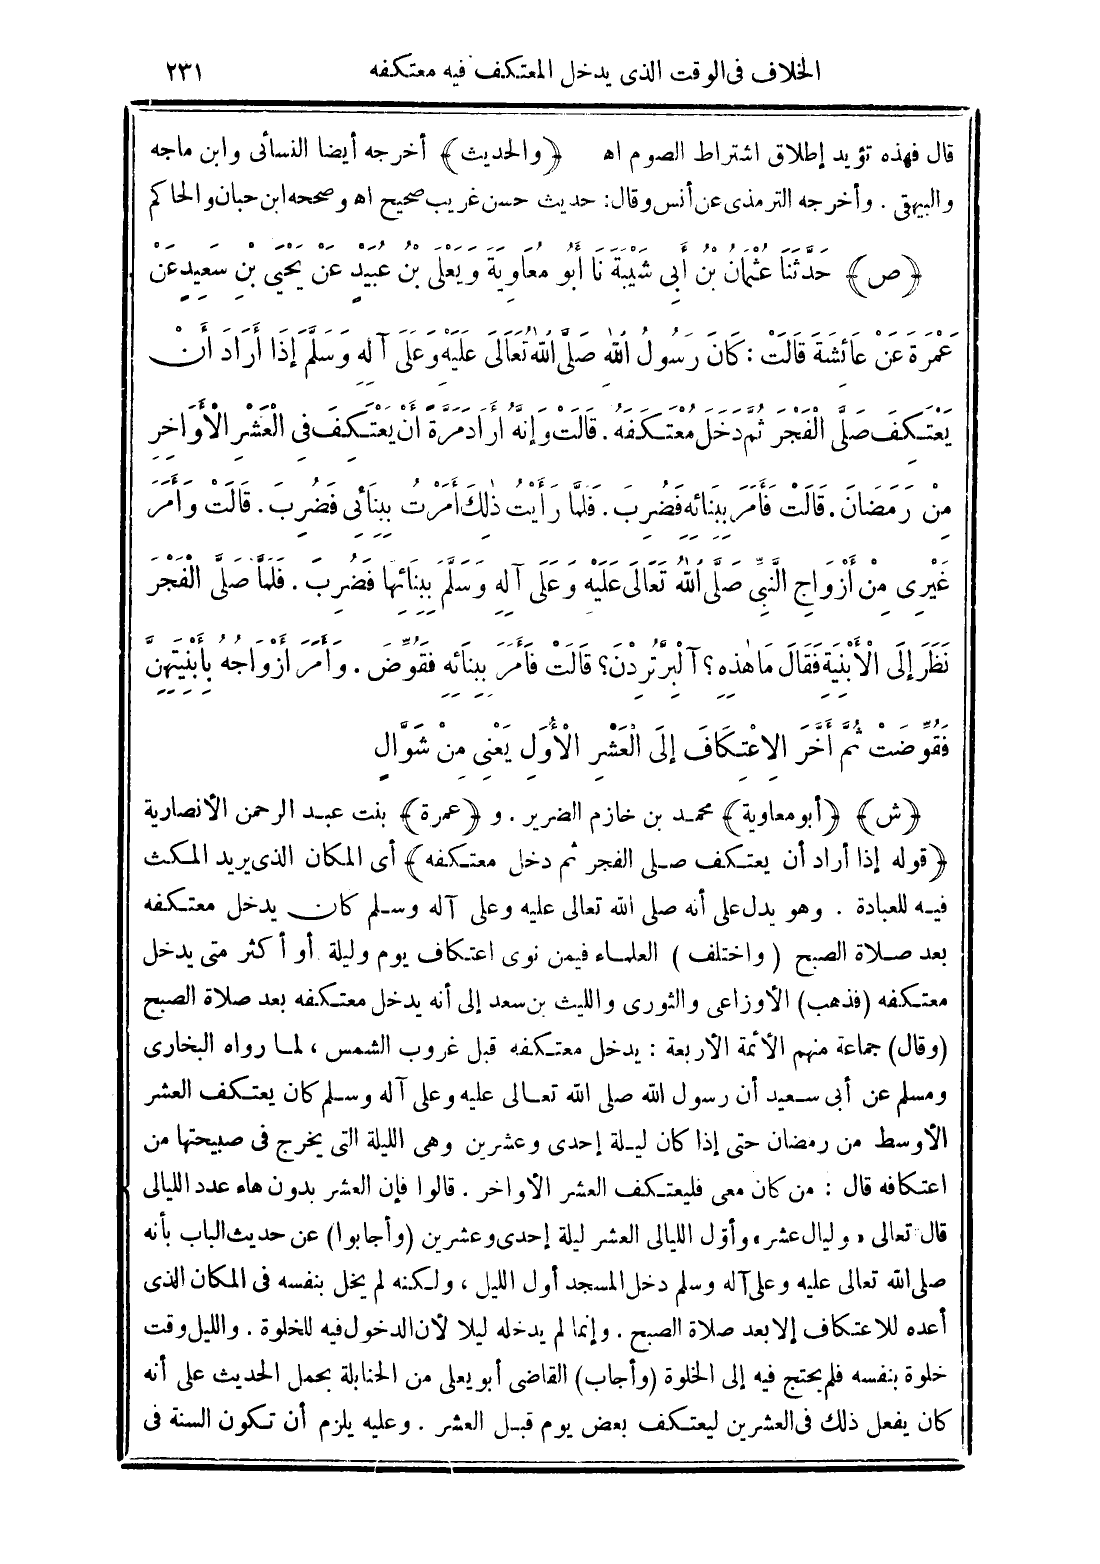 الخلاف فى الوقت الذى يدخل المعتكف فيه معتكفه ٢٣١
قال فهذه تؤيد إطلاق اشتراط الصوم اه ﴿والحديث﴾ أخرجه أيضا النسائى وابن ماجه
والبيهقى . وأخرجه الترمذى عن أنس وقال: حديث حسن غريب صحيح اه وصححه ابن حبان والحاكم
﴿ص﴾ حَدَّثَنَا عُثْمَانُ بْنُ أَبِى شَيْبَةَ نَا أَبُو مُعَاوِيَةَ وَيَعْلَى بْنُ عُبَيْدٍ عَنْ يَحْيَى بْنِ سَعِيدٍ عَنْ
عَمْرَةَ عَنْ عَائِشَةَ قَالَتْ : كَانَ رَسُولُ اللهِ صَلَّى اللهُ تَعَالَى عَلَيْهِ وَعَلَى آلِهِ وَسَلَّمَ إِذَا أَرَادَ أَنْ
يَعْتَكِفَ صَلَّى الْفَجْرَ ثُمَّ دَخَلَ مُعْتَكَفَهُ . قَالَتْ وَإِنَّهُ أَرَادَ مَرَّةً أَنْ يَعْتَكِفَ فِى الْعَشْرِ الْأَوَاخِرِ
مِنْ رَمَضَانَ . قَالَتْ فَأَمَرَ بِبِنَائِهِ فَضُرِبَ . فَلَمَّا رَأَيْتُ ذٰلِكَ أَمَرْتُ بِبِنَائِى فَضُرِبَ . قَالَتْ وَأَمَرَ
غَيْرِى مِنْ أَزْوَاجِ النَّبِىِّ صَلَّى اللهُ تَعَالَى عَلَيْهِ وَعَلَى آلِهِ وَسَلَّمَ بِبِنَائِهَا فَضُرِبَ . فَلَمَّا صَلَّى الْفَجْرَ
نَظَرَ إِلَى الْأَبْنِيَةِ فَقَالَ مَا هٰذِهِ ؟ آلْبِرَّ تُرِدْنَ؟ قَالَتْ فَأَمَرَ بِبِنَائِهِ فَقُوِّضَ . وَأَمَرَ أَزْوَاجُهُ بِأَبْنِيَتِهِنَّ
فَقُوِّضَتْ ثُمَّ أَخَّرَ الِاعْتِكَافَ إِلَى الْعَشْرِ الْأُوَلِ يَعْنِى مِنْ شَوَّالٍ
﴿ش﴾ ﴿أبو معاوية﴾ محمد بن خازم الضرير . و ﴿عمرة﴾ بنت عبد الرحمن الأنصارية
﴿قوله إذا أراد أن يعتكف صلى الفجر ثم دخل معتكفه﴾ أى المكان الذى يريد المكث
فيه للعبادة . وهو يدل على أنه صلى الله تعالى عليه وعلى آله وسلم كان يدخل معتكفه
بعد صلاة الصبح ( واختلف ) العلماء فيمن نوى اعتكاف يوم وليلة أو أكثر متى يدخل
معتكفه (فذهب) الأوزاعى والثورى والليث بن سعد إلى أنه يدخل معتكفه بعد صلاة الصبح
(وقال) جماعة منهم الأئمة الأربعة : يدخل معتكفه قبل غروب الشمس ، لما رواه البخارى
ومسلم عن أبى سعيد أن رسول الله صلى الله تعالى عليه وعلى آله وسلم كان يعتكف العشر
الأوسط من رمضان حتى إذا كان ليلة إحدى وعشرين وهى الليلة التى يخرج فى صبيحتها من
اعتكافه قال : من كان معى فليعتكف العشر الأواخر . قالوا فإن العشر بدون هاء عدد الليالى
قال تعالى «وليال عشر» وأوّل الليالى العشر ليلة إحدى وعشرين (وأجابوا) عن حديث الباب بأنه
صلى الله تعالى عليه وعلى آله وسلم دخل المسجد أول الليل ، ولكنه لم يخل بنفسه فى المكان الذى
أعده للاعتكاف إلا بعد صلاة الصبح . وإنما لم يدخله ليلا لأن الدخول فيه للخلوة . والليل وقت
خلوة بنفسه فلم يحتج فيه إلى الخلوة (وأجاب) القاضى أبو يعلى من الحنابلة بحمل الحديث على أنه
كان يفعل ذلك فى العشرين ليعتكف بعض يوم قبل العشر . وعليه يلزم أن تكون السنة فى